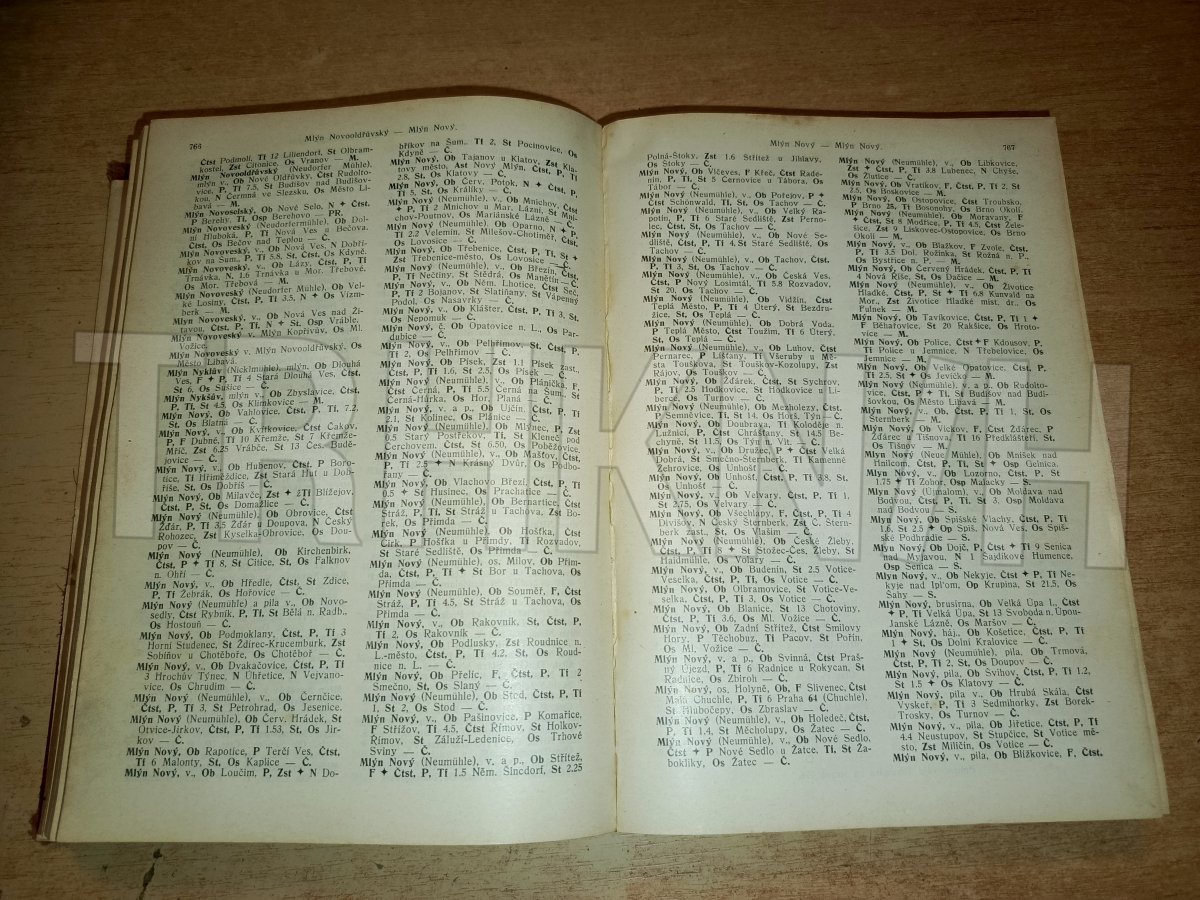 766
Mlýn Novooldřůvský — Mlýn Nový.
Čtst Podmolí, Tf 12 Liliendorf, St Olbram-
kostel, Zst Citonice, Os Vranov — M.
Mlýn Novooldřůvský (Neudorfer Mühle),
mlýn v., Ob Nové Oldřůvky, Čtst Rudolto-
vice, P, Tf 7.5, St Budišov nad Budišov-
kou, N Čermná ve Slezsku, Os Město Li-
bavá — M.
Mlýn Novoselský, Ob Nové Selo, N ✦ Čtst,
P Berehy, Tf, Osp Berehovo — PR.
Mlýn Novoveský (Neudorfermühle), Ob Dol-
ní Hluboká, P, Tf Nová Ves u Bečova,
Čtst, Os Bečov nad Teplou — Č.
Mlýn Novoveský, v., Ob Nová Ves, N Dobří-
kov na Šum., P, Tf 5.8, St, Čtst, Os Kdyně.
Mlýn Novoveský, v., Ob Lázy, Čtst, P, Tf
Trnávka, N 1.6 Trnávka u Mor. Třebové,
Os Mor. Třebová — M.
Mlýn Novoveský (Neudorfer Mühle), Ob Vel-
ké Losiny, Čtst, P, Tf 3.5, N ✦ Os Vizm-
berk — M.
Mlýn Novoveský, v., Ob Nová Ves nad Ži-
tavou, Čtst, P, Tf, N ✦ St, Osp Vráble.
Mlýn Novoveský v. Mlýn Kopřivův, Os Ml.
Vožice.
Mlýn Novoveský v. Mlýn Novooldřůvský, Os
Město Libavá.
Mlýn Nyklův (Nicklmühle), mlýn, Ob Dlouhá
Ves, F ✦ P, Tf 4 Stará Dlouhá Ves, Čtst,
St 6, Os Sušice — Č.
Mlýn Nykšův, mlýn v., Ob Zbyslavice, Čtst,
P, Tf, St 4.5, Os Klimkovice — M.
Mlýn Nový, Ob Vahlovice, Čtst, P, Tf 7.2,
St, Os Blatná — Č.
Mlýn Nový, v., Ob Kvítkovice, Čtst Čakov,
P, F Dubné, Tf 10 Křemže, St 7 Křemže-
Mříč, Zst 6.25 Vrábce, St 13 Čes. Budě-
jovice — Č.
Mlýn Nový, v., Ob Hubenov, Čtst, P Boro-
tice, Tf Hříměždice, Zst Stará Huť u Dob-
říše, St, Os Dobříš — Č.
Mlýn Nový, Ob Milavče, Zst ✦ žTf Blížejov,
Čtst, P, St, Os Domažlice — Č.
Mlýn Nový (Neumühle), Ob Obrovice, Čtst
Žďár, P, Tf 3.5 Žďár u Doupova, N Český
Rohozec, Zst Kyselka-Obrovice, Os Dou-
pov — Č.
Mlýn Nový (Neumühle), Ob Kirchenbirk,
Čtst, P ✦ Tf 8, St Citice, St, Os Falknov
n. Ohří — Č.
Mlýn Nový, v., Ob Hředle, Čtst, St Zdice,
P, Tf Žebrák, Os Hořovice — Č.
Mlýn Nový (Neumühle) a pila v., Ob Novo-
sedly, Čtst Rybník, P, Tf, St Bělá n. Radb.,
Os Hostouň — Č.
Mlýn Nový, Ob Podmoklany, Čtst, P, Tf 3
Horní Studenec, St Ždírec-Krucemburk, Zst
Sobíňov u Chotěboře, Os Chotěboř — Č.
Mlýn Nový, v., Ob Dvakačovice, Čtst, P, Tf
3 Hrochův Týnec, N Úhřetice, N Vejvano-
vice, Os Chrudim — Č.
Mlýn Nový (Neumühle), v., Ob Černčice,
Čtst, P, Tf 3, St Petrohrad, Os Jesenice.
Mlýn Nový (Neumühle), Ob Červ. Hrádek, St
Otvice-Jirkov, Čtst, P, Tf 1.53, St, Os Jir-
kov — Č.
Mlýn Nový, Ob Rapotice, P Terčí Ves, Čtst,
Tf 6 Malonty, St, Os Kaplice — Č.
Mlýn Nový, v., Ob Loučim, P, Zst ✦ N Do-
bříkov na Šum., Tf 2, St Pocinovice, Os
Kdyně — Č.
Mlýn Nový, Ob Tajanov u Klatov, Zst Kla-
tovy město, Ast Nový Mlýn, Čtst, P, Tf
2.8, St, Os Klatovy — Č.
Mlýn Nový, Ob Červ. Potok, N ✦ Čtst, P,
Tf 5, St, Os Králíky — Č.
Mlýn Nový (Neumühle), v., Ob Mnichov, Čtst
✦ P, Tf 2 Mnichov u Mar. Lázní, St Mni-
chov-Poutnov, Os Mariánské Lázně — Č.
Mlýn Nový (Neumühle), Ob Oparno, N ✦ P,
Tf 2.2 Velemín, St Milešov-Chotiměř, Čtst,
Os Lovosice — Č.
Mlýn Nový, Ob Třebenice, Čtst, P, Tf, St ✦
Zst Třebenice-město, Os Lovosice — Č.
Mlýn Nový (Neumühle), v., Ob Březín, Čtst,
P, Tf Nečtiny, St Štědrá, Os Manětín — Č.
Mlýn Nový, v., Ob Něm. Lhotice, Čtst Seč,
P, Tf 2 Bojanov, St Slatiňany, St Vápenný
Podol, Os Nasavrky — Č.
Mlýn Nový, v., Ob Klášter, Čtst, P, Tf 3, St,
Os Nepomuk — Č.
Mlýn Nový, č. Ob Opatovice n. L., Os Par-
dubice — Č.
Mlýn Nový, v., Ob Pelhřimov, St, Čtst, P,
Tf 2, Os Pelhřimov — Č.
Mlýn Nový, Ob Písek, Zst 1.1 Písek zast.,
Čtst, P, Tf 1.6, St 2.5, Os Písek — Č.
Mlýn Nový (Neumühle), v., Ob Plánička, F,
Čtst Černá, P, Tf 5.5 Černá na Šum., St
Černá-Hůrka, Os Hor. Planá — Č.
Mlýn Nový, v. a p., Ob Ujčín, Čtst, P, Tf
2.1, St Kolinec, Os Plánice — Č.
Mlýn Nový (Neumühle), Ob Mlýnec, P, Zst
0.5 Starý Postřekov, Tf, St Kleneč pod
Čerchovem, Čtst, St 6.50, Os Poběžovice.
Mlýn Nový (Neumühle), v., Ob Mašťov, Čtst,
P, Tf 2.5 ✦ N Krásný Dvůr, Os Podbo-
řany — Č.
Mlýn Nový, Ob Vlachovo Březí, Čtst, P, Tf
0.5 ✦ St Husinec, Os Prachatice — Č.
Mlýn Nový (Neumühle), Ob Bernartice, Čtst
Stráž, P, Tf, St Stráž u Tachova, Zst Bo-
rek, Os Přimda — Č.
Mlýn Nový (Neumühle), v., Ob Hošťka, Čtst
Cirk, P Hošťka u Přimdy, Tf Rozvadov,
St Staré Sedliště, Os Přimda — Č.
Mlýn Nový (Neumühle), os. Milov, Ob Přim-
da, Čtst, P, Tf ✦ St Bor u Tachova, Os
Přimda — Č.
Mlýn Nový (Neumühle), Ob Souměř, F, Čtst
Stráž, P, Tf 4.5, St Stráž u Tachova, Os
Přimda — Č.
Mlýn Nový, v., Ob Rakovník, St, Čtst, P,
Tf 2, Os Rakovník — Č.
Mlýn Nový, Ob Podlusky, Zst Roudnice n.
L.-město, Čtst, P, Tf 4.2, St, Os Roud-
nice n. L. — Č.
Mlýn Nový, Ob Přelíc, F, Čtst, P, Tf 2
Smečno, St, Os Slaný — Č.
Mlýn Nový (Neumühle), Ob Stod, Čtst, P, Tf
1, St 2, Os Stod — Č.
Mlýn Nový, v., Ob Pašinovice, P Komařice,
F Střížov, Tf 4.5, Čtst Římov, St Holkov-
Římov, St Záluží-Ledenice, Os Trhové
Sviny — Č.
Mlýn Nový (Neumühle), v. a p., Ob Střítež,
F ✦ Čtst, P, Tf 1.5 Něm. Šicndorf, St 2.25
Mlýn Nový — Mlýn Nový.
767
Polná-Štoky, Zst 1.6 Střítež u Jihlavy,
Os Štoky — Č.
Mlýn Nový, Ob Vlčeves, F Křeč, Čtst Rade-
nín, P, Tf, St 5 Černovice u Tábora, Os
Tábor — Č.
Mlýn Nový (Neumühle), v., Ob Pořejov, P ✦
Čtst Schönwald, Tf, St, Os Tachov — Č.
Mlýn Nový (Neumühle), v., Ob Velký Ra-
potín, P, Tf 6 Staré Sedliště, Zst Pernо-
lec, Čtst, St, Os Tachov — Č.
Mlýn Nový (Neumühle), v., Ob Nové Sed-
liště, Čtst, P, Tf 4, St Staré Sedliště, Os
Tachov — Č.
Mlýn Nový (Neumühle), v., Ob Tachov, Čtst,
P, Tf 3, St, Os Tachov — Č.
Mlýn Nový (Neumühle), v., Ob Česká Ves,
Čtst, P Nový Losimtál, Tf 5.8 Rozvadov,
St 20, Os Tachov — Č.
Mlýn Nový (Neumühle), Ob Vidžín, Čtst
Teplá Město, P, Tf 4 Úterý, St Bezdru-
žice, St, Os Teplá — Č.
Mlýn Nový (Neumühle), Ob Dobrá Voda,
P Teplá Město, Čtst Toužim, Tf 6 Úterý,
St, Os Teplá — Č.
Mlýn Nový (Neumühle), v., Ob Luhov, Čtst
Pernarec, P Líšťany, Tf Všeruby u Mě-
sta Touškova, St Touškov-Kozolupy, Zst
Rájov, Os Touškov — Č.
Mlýn Nový, Ob Žďárek, Čtst, St Sychrov,
P, Tf 2.5 Hodkovice, St Hodkovice u Li-
berce, Os Turnov — Č.
Mlýn Nový (Neumühle), Ob Mezholezy, Čtst,
P Semněvice, Tf, St 14, Os Horš. Týn — Č.
Mlýn Nový, Ob Doubrava, Tf Koloděje n.
Lužnicí, P, Čtst Chrášťany, St 14.5 Be-
chyně, St 11.5, Os Týn n. Vlt. — Č.
Mlýn Nový, v., Ob Družec, P ✦ Čtst Velká
Dobrá, St Smečno-Šternberk, Tf Kamenné
Žehrovice, Os Unhošť — Č.
Mlýn Nový, Ob Unhošť, Čtst, P, Tf 3.8, St,
Os Unhošť — Č.
Mlýn Nový, v., Ob Velvary, Čtst, P, Tf 1,
St 2.75, Os Velvary — Č.
Mlýn Nový, Ob Všechlapy, F, Čtst, P, Tf 4
Divišov, N Český Šternberk, Zst Č. Štern-
berk zast., St, Os Vlašim — Č.
Mlýn Nový (Neumühle), Ob České Žleby,
Čtst, P, Tf 8 ✦ St Stožec-Čes. Žleby, St
Haidmühle, Os Volary — Č.
Mlýn Nový, v., Ob Budenín, St 2.5 Votice-
Veselka, Čtst, P, Tf, Os Votice — Č.
Mlýn Nový, Ob Olbramovice, St Votice-Ve-
selka, Čtst, P, Tf 3, Os Votice — Č.
Mlýn Nový, Ob Blanice, St 13 Chotoviny,
Čtst, P, Tf 3.6, Os Ml. Vožice — Č.
Mlýn Nový, Ob Zadní Střítež, Čtst Smilovy
Hory, P Těchobuz, Tf Pacov, St Pořín,
Os Ml. Vožice — Č.
Mlýn Nový, v. a p., Ob Svinná, Čtst Praš-
ný Újezd, P, Tf 6 Radnice u Rokycan, St
Radnice, Os Zbiroh — Č.
Mlýn Nový, os. Holyně, Ob, F Slivenec, Čtst
Malá Chuchle, P, Tf 6 Praha 64 (Chuchle),
St Hlubočepy, Os Zbraslav — Č.
Mlýn Nový (Neumühle), v., Ob Holedeč, Čtst,
P, Tf 1.4, St Měcholupy, Os Žatec — Č.
Mlýn Nový (Neumühle), v., Ob Nové Sedlo,
Čtst ✦ P Nové Sedlo u Žatce, Tf, St Ža-
bokliky, Os Žatec — Č.
Mlýn Nový (Neumühle), v., Ob Libkovice,
Zst, Čtst ✦ P, Tf 3.8 Lubenec, N Chyše,
Os Žlutice — Č.
Mlýn Nový, Ob Vratíkov, F, Čtst, P, Tf 2, St
2.5, Os Boskovice — M.
Mlýn Nový, Ob Ostopovice, Čtst Troubsko,
P Brno 28, Tf Bosonohy, Os Brno Okolí.
Mlýn Nový (Neumühle), Ob Moravany, F ✦
Čtst, St 8 Modřice, P, Tf 4.5, Čtst Žele-
šice, Zst 9 Lískovec-Ostopovice, Os Brno
Okolí — M.
Mlýn Nový, v., Ob Blažkov, F Zvole, Čtst,
P, Tf 3.5 Dol. Rožínka, St Rožná n. P.,
Os Bystřice n. P. — M.
Mlýn Nový, Ob Červený Hrádek, Čtst, P, Tf
4 Nová Říše, St, Os Dačice — M.
Mlýn Nový (Neumühle), v., Ob Životice
Hladké, Čtst, P, St ✦ Tf 6.8 Kunvald na
Mor., Zst Životice Hladké míst. dr., Os
Fulnek — M.
Mlýn Nový, Ob Tavíkovice, Čtst, P, Tf 1 ✦
F Běhařovice, St 20 Rakšice, Os Hroto-
vice — M.
Mlýn Nový, Ob Police, Čtst ✦ F Kdousov, P,
Tf Police u Jemnice, N Třebelovice, Os
Jemnice — M.
Mlýn Nový, Ob Velké Opatovice, Čtst, P,
Tf 2.5, St ✦ Os Jevíčko — M.
Mlýn Nový (Neumühle), v. a p., Ob Rudolto-
vice, Čtst, P ✦ Tf, St Budišov nad Budi-
šovkou, Os Město Libavá — M.
Mlýn Nový, v., Ob, Čtst, P, Tf 1, St, Os
Šternberk — M.
Mlýn Nový, Ob Vickov, F, Čtst Žďárec, P
Žďárec u Tišnova, Tf 16 Předklášteří, St,
Os Tišnov — M.
Mlýn Nový (Neumühle), Ob Mníšek nad
Hnilcom, Čtst, P, Tf, St ✦ Osp Gelnica.
Mlýn Nový, v., Ob Lozorno, Čtst, P, St
1.75 ✦ Tf Zohor, Osp Malacky — S.
Mlýn Nový (Ujmalom), v., Ob Moldava nad
Bodvou, Čtst, P, Tf, St 3, Osp Moldava
nad Bodvou — S.
Mlýn Nový, Ob Spišské Vlachy, Čtst, P, Tf
1.6, St 2.5 ✦ Osp Spiš. Nová Ves, Os Spiš-
ské Podhradie — S.
Mlýn Nový, Ob Dojč, P, Čtst ✦ Tf 9 Senica
nad Myjavou, N Šajdíkové Humence,
Osp Senica — S.
Mlýn Nový, v., Ob Nekyje, Čtst ✦ P, Tf Ne-
kyje nad Ipľom, Osp Krupina, St 21.5, Os
Šahy — S.
Mlýn Nový, brusírna, Ob Velká Úpa I., Čtst
✦ P, Tf Velká Úpa, St 13 Svoboda n. Úpou-
Janské Lázně, Os Maršov — Č.
Mlýn Nový, háj., Ob Košetice, Čtst, P, Tf
1 ✦ St, Os Dolní Kralovice — Č.
Mlýn Nový (Neumühle), pila, Ob Trmová,
Čtst, P, Tf 2, St, Os Doupov — Č.
Mlýn Nový, pila, Ob Svihov, Čtst, P, Tf 1.2,
St 1.5 ✦ Os Klatovy — Č.
Mlýn Nový, pila v., Ob Hrubá Skála, Čtst
Vyskeř, P, Tf 3 Sedmihorky, Zst Borek-
Trosky, Os Turnov — Č.
Mlýn Nový, v., pila, Ob Jiřetice, Čtst, P, Tf
4.4 Neustupov, St Stupčice, St Votice mě-
sto, Zst Miličín, Os Votice — Č.
Mlýn Nový, v., pila, Ob Blížkovice, F, Čtst,
TRIKNIHY